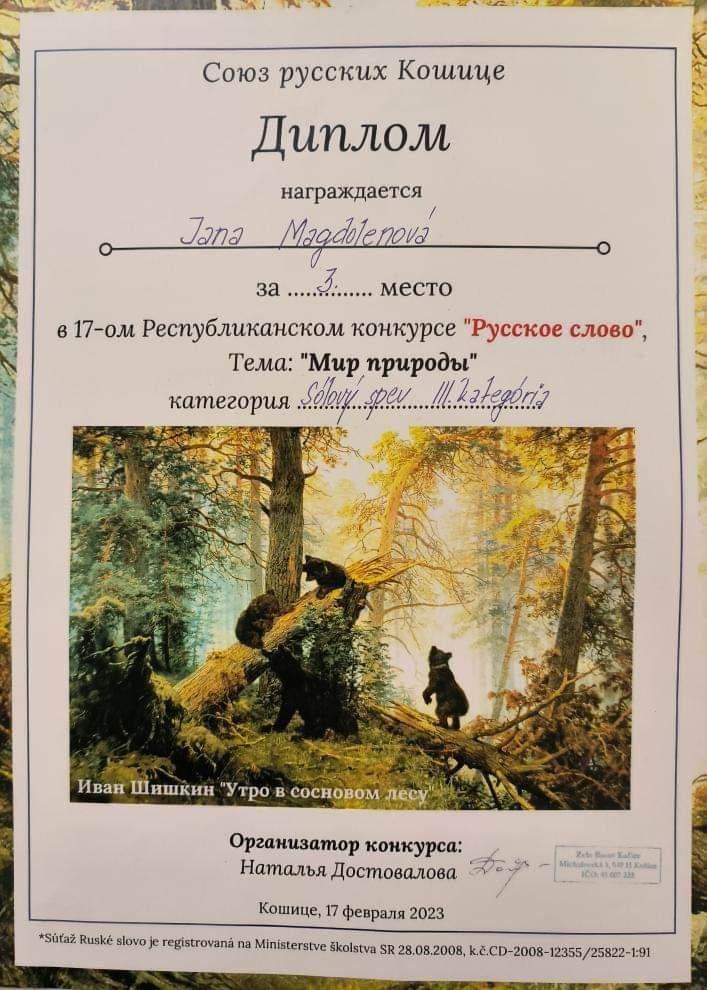 Союз русских Кошице
Диплом
награждается
Jana Magdolenová
за ....3....... место
в 17-ом Республиканском конкурсе "Русское слово",
Тема: "Мир природы"
категория Sólový spev III. kategória
Иван Шишкин "Утро в сосновом лесу"
Организатор конкурса:
Наталья Достовалова
Кошице, 17 февраля 2023
*Súťaž Ruské slovo je registrovaná na Ministerstve školstva SR 28.08.2008, k.č.CD-2008-12355/25822-1:91